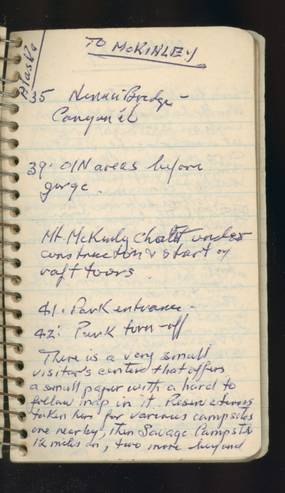 Alaska
TO McKINLEY
35 Nenana Bridge -
Canyon
39. O/N areas before
gorge.
Mt. McKinley Chalet under
construction & start of
raft tours
41. Park entrance -
42. Park turn-off
There is a very small
visitor's center that offers
a small paper with a hard to
follow map in it. Reservations
taken here for various campsites
one nearby, then Savage Campsite
12 miles on, two more beyond